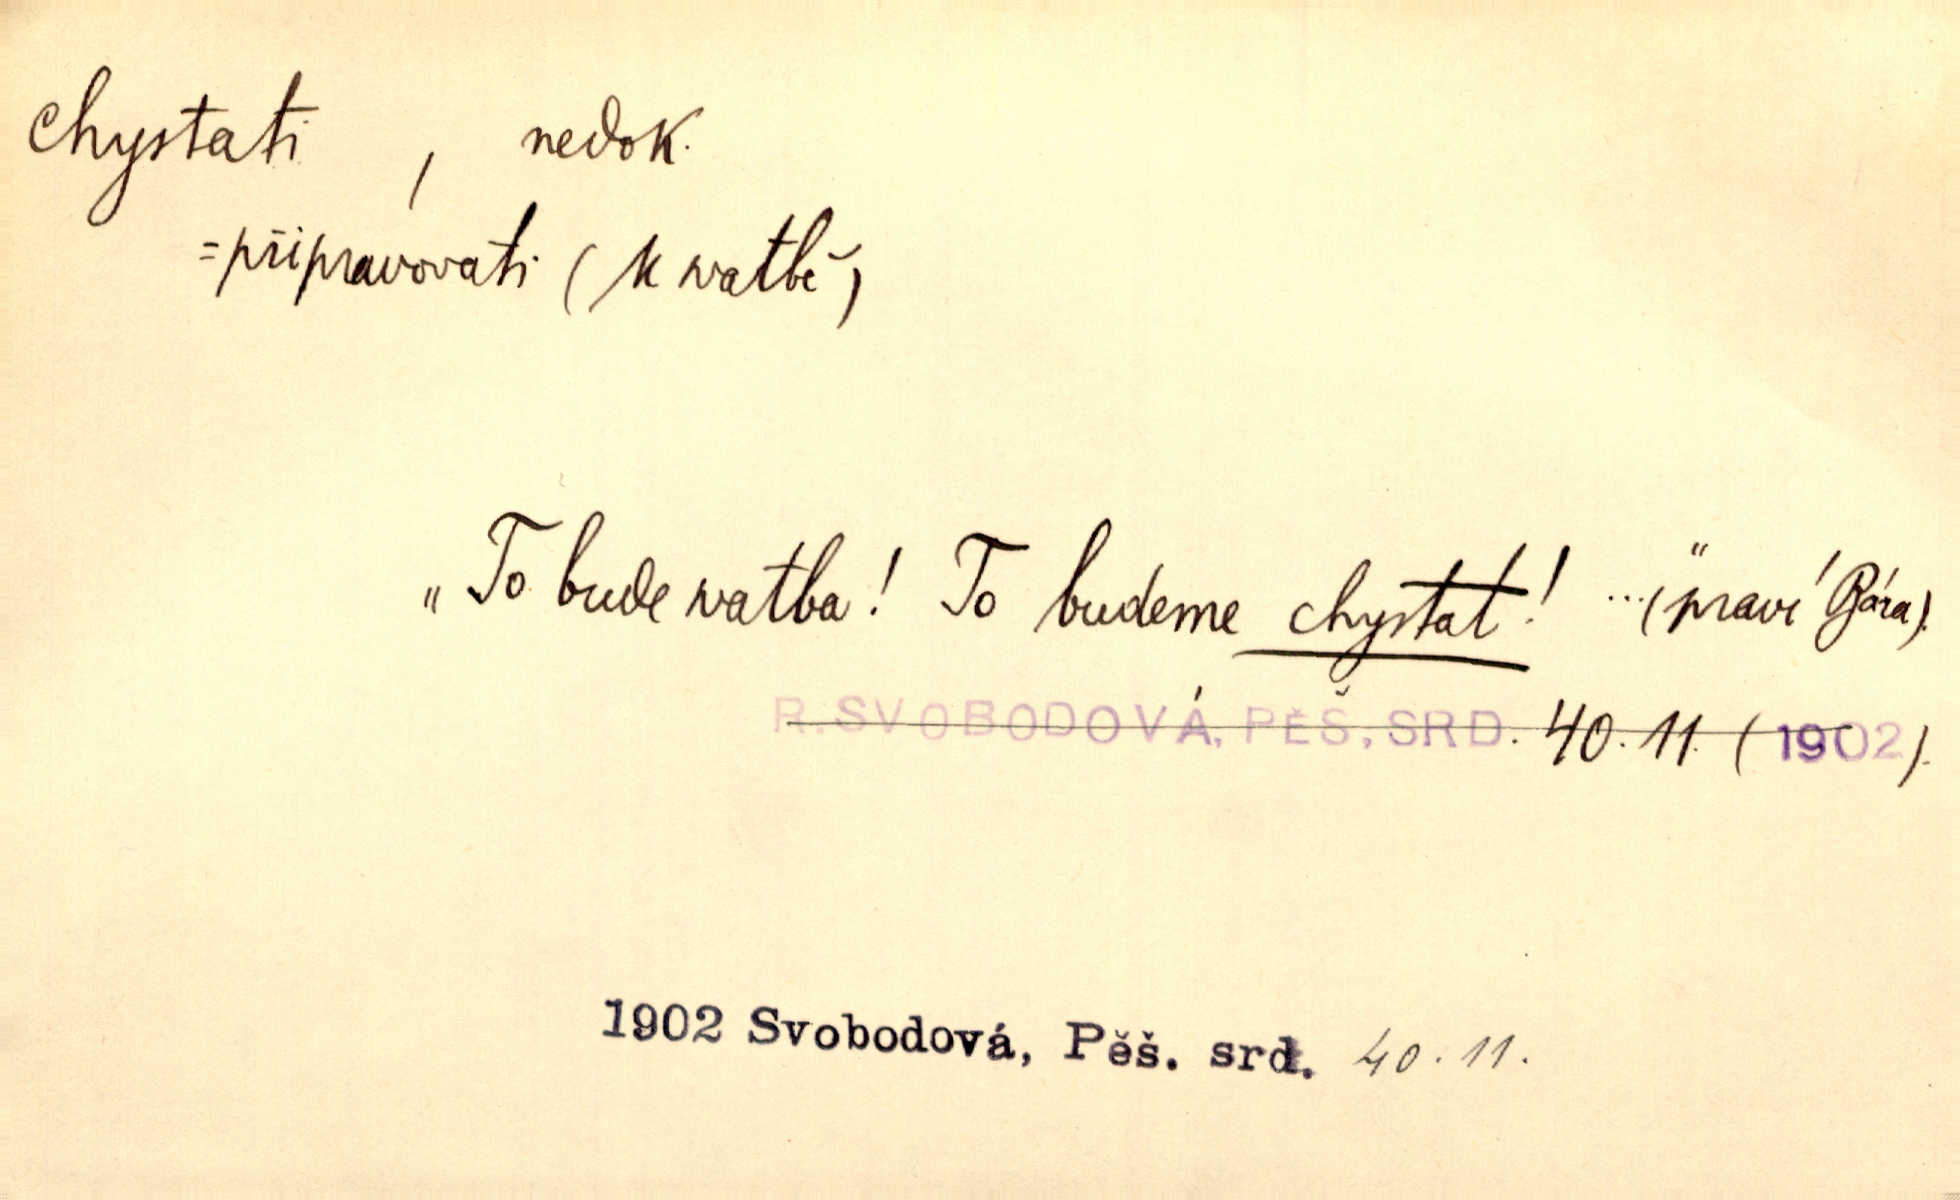 chystati , nedok.
= připravovati (k svatbě)
„To bude svatba! To budeme chystat! ..." (praví Bára).
R. SVOBODOVÁ, PĚŠ, SRD. 40. 11. (1902).
1902 Svobodová, Pěš. srd. 40. 11.